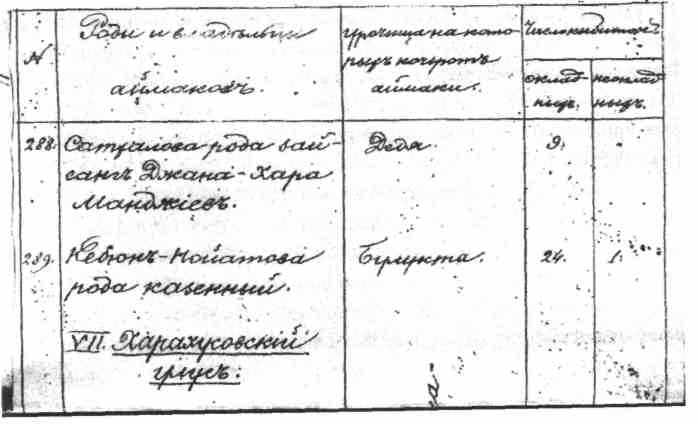 №
Роды и владѣльцы
аймаковъ.
урочища на кото
рыхъ кочуютъ
аймаки.
Число кибитокъ
оклад-
ныхъ.
неоклад
ныхъ.
288. Сатхалова рода зай-
сангъ Джана-Хара
Манджіевъ.
Дедя.
9.
289. Кебюнъ-Нойатова
рода казенный.
24.
1.
VII. Харахусовскій
улусъ: